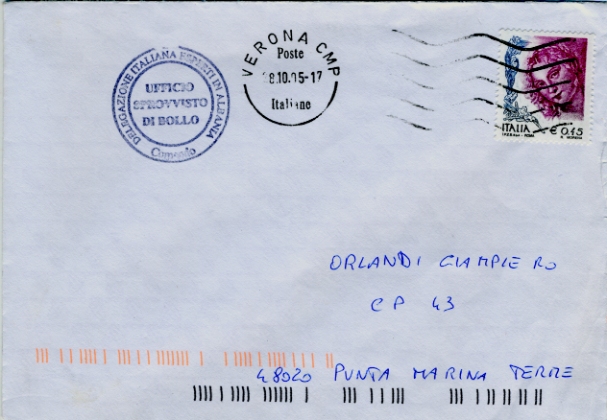 DELEGAZIONE ITALIANA ESPERTI IN ALBANIA
UFFICIO
SPROVVISTO
DI BOLLO
Comando
VERONA CMP
Poste
8.10.05-17
Italiane
ITALIA
€ 0,45
ORLANDI GIAMPIERO
CP 43
48020 PUNTA MARINA TERME